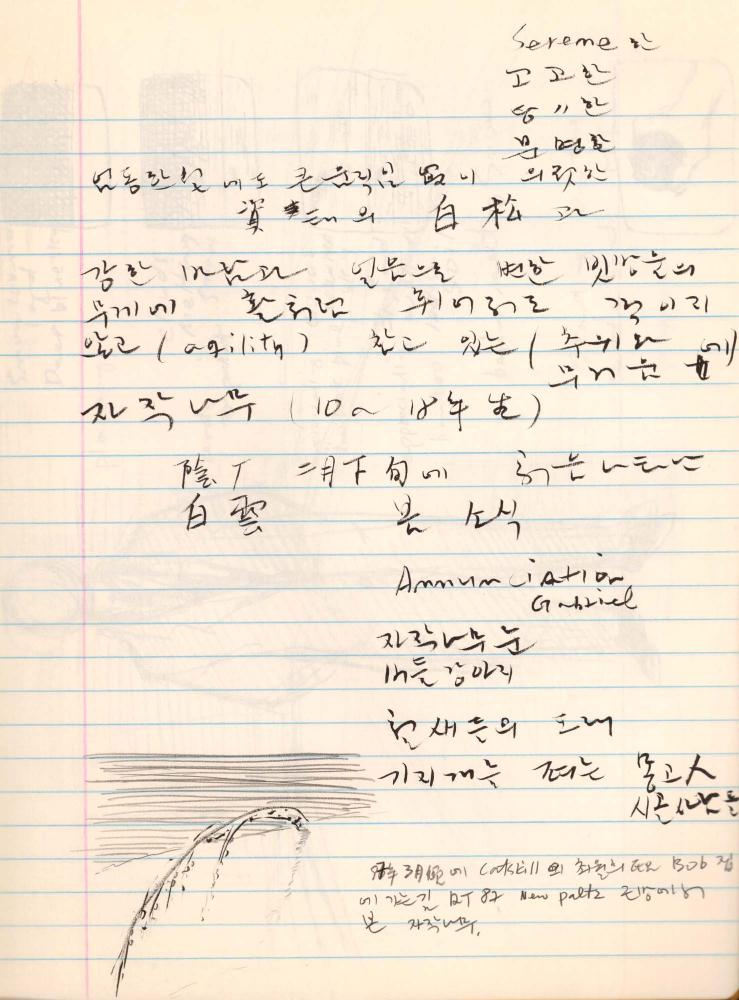 Serene 한
고고한
당 〃 한
분명한
의젓한
엄동한설에도 큰 움직임 없이
資態의 白松과
강한 바람과 얼음으로 변한 빗방울의
무게에 활처럼 휘어져도 꺾이지
않고 (agility) 참고 있는 (추위와
무거운 눈에)
자작나무 (10~18年生)
陰 二月下旬에
白雲 봄 소식
Annunciation
Gabriel
자작나무 눈
버들강아지
철새들의 노래
기지개를 켜는 몽고人
시골사람들
3月 에 Catskill 의 Bob 집
에 가는길 RT 87 New paltz 근방에서
본 자작나무.